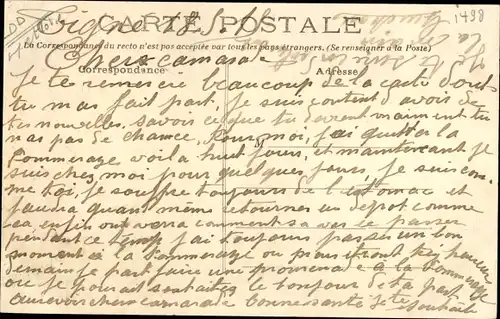 CARTE POSTALE
1498
La Correspondance du recto n'est pas acceptée par tous les pays étrangers. (Se renseigner à la Poste)
Cher camarade
Correspondance Adresse
Je te remercie beaucoup de la carte dont
tu mas fait part, je suis content d'avoir de
tes nouvelles, savoir ce que tu devient vraiment tu
nas pas de chance, Pour moi, j'ai quitter la
Pommeraye voila huit jours, et maintenant je
suis chez moi pour quelques jours, je suis com-
me toi, je souffre toujours de l'estomac et
faudra quand même retourner au dépot comme
sa enfin on verra comment sa va se passer
pendant ce temps j'ai toujours passer un bon
moment a la Pommeraye
demain je part faire une promenade a la Pommeraye
ou je pourrait souhaiter le bonjour de ta part
aurevoir cher camarade bonne santé je te souhaite